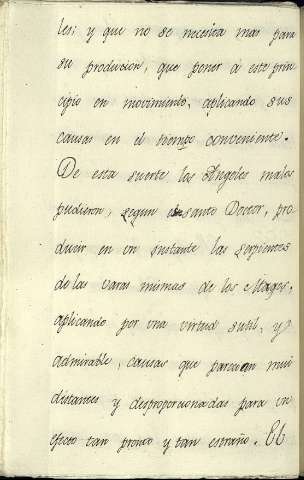 les; y que no se necesita mas para
su producion, que poner á este prin
cipio en movimiento, aplicando sus
causas en el tiempo conveniente.
De esta suerte los Angeles malos
pudieron, segun el santo Doctor, pro
ducir en un instante las serpientes
de las varas mismas de los Magos,
aplicando por una virtud sutil, y
admirable, causas que parecian mui
distantes y desproporcionadas para un
efecto tan pronto y tan estraño. El